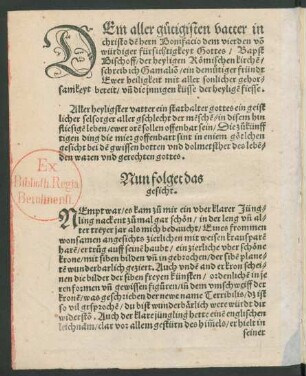 DEin aller gütigisten vatter in
christo dē hern Bonifacio dem vierden vō
würdiger fürsichtigkeyt Gottes / Bapst
Bischoff / der heyligen Römischen kirche /
schreib ich Gamaliō / ein demütiger fründt
Ewer heiligkeit mit aller sonlicher gehor-
samikeyt bereit / vñ die jungen küsse der heylgē fiesse.
Aller heyligster vatter ein stathalter gottes ein geist
licher selsorger aller gschlecht der mēschē / in disem hin
fliessigē lebens / ewer orē sollen offenbar sein / Die zūkünff
tigen ding die mir geoffenbart sint in einem götlichen
gesicht bei dē gwissen botten vnd dolmetscher des lebē-
den waren vnd gerechten gottes.
Nun folget das
gesicht.
NEmpt war / es kam zū mir ein vber klarer Jüng-
ling nackent zūmal gar schön / in der leng vñ al-
ter dreyer jar als mich bedaucht / Eines frommen
wonsamen angesichts zierlichen mit weisen transparē
harē / er trūg auff seinē haubt / ein zierliche vnd schöne
krone / mit siben bilden vñ in gebrochen / der sibē plane-
tē wunderbarlich geziert. Auch vndē an der kron schei-
nen die bilder der siben freyen künsten / ordenliche in je-
ren formen vñ gewissen figüren / in dem vmschweiff der
kronē / was geschriben der neuwe name Terribilis / dz ist
so vil gsprochē / du bist wunderbarlich wer würdt dir
widerstō. Auch der klare jüngling hette eine englischen
leichnam / clar vor allem gestirn des himels / er hielt in
seiner
Ex
Biblioth. Regia
Berolinensi.